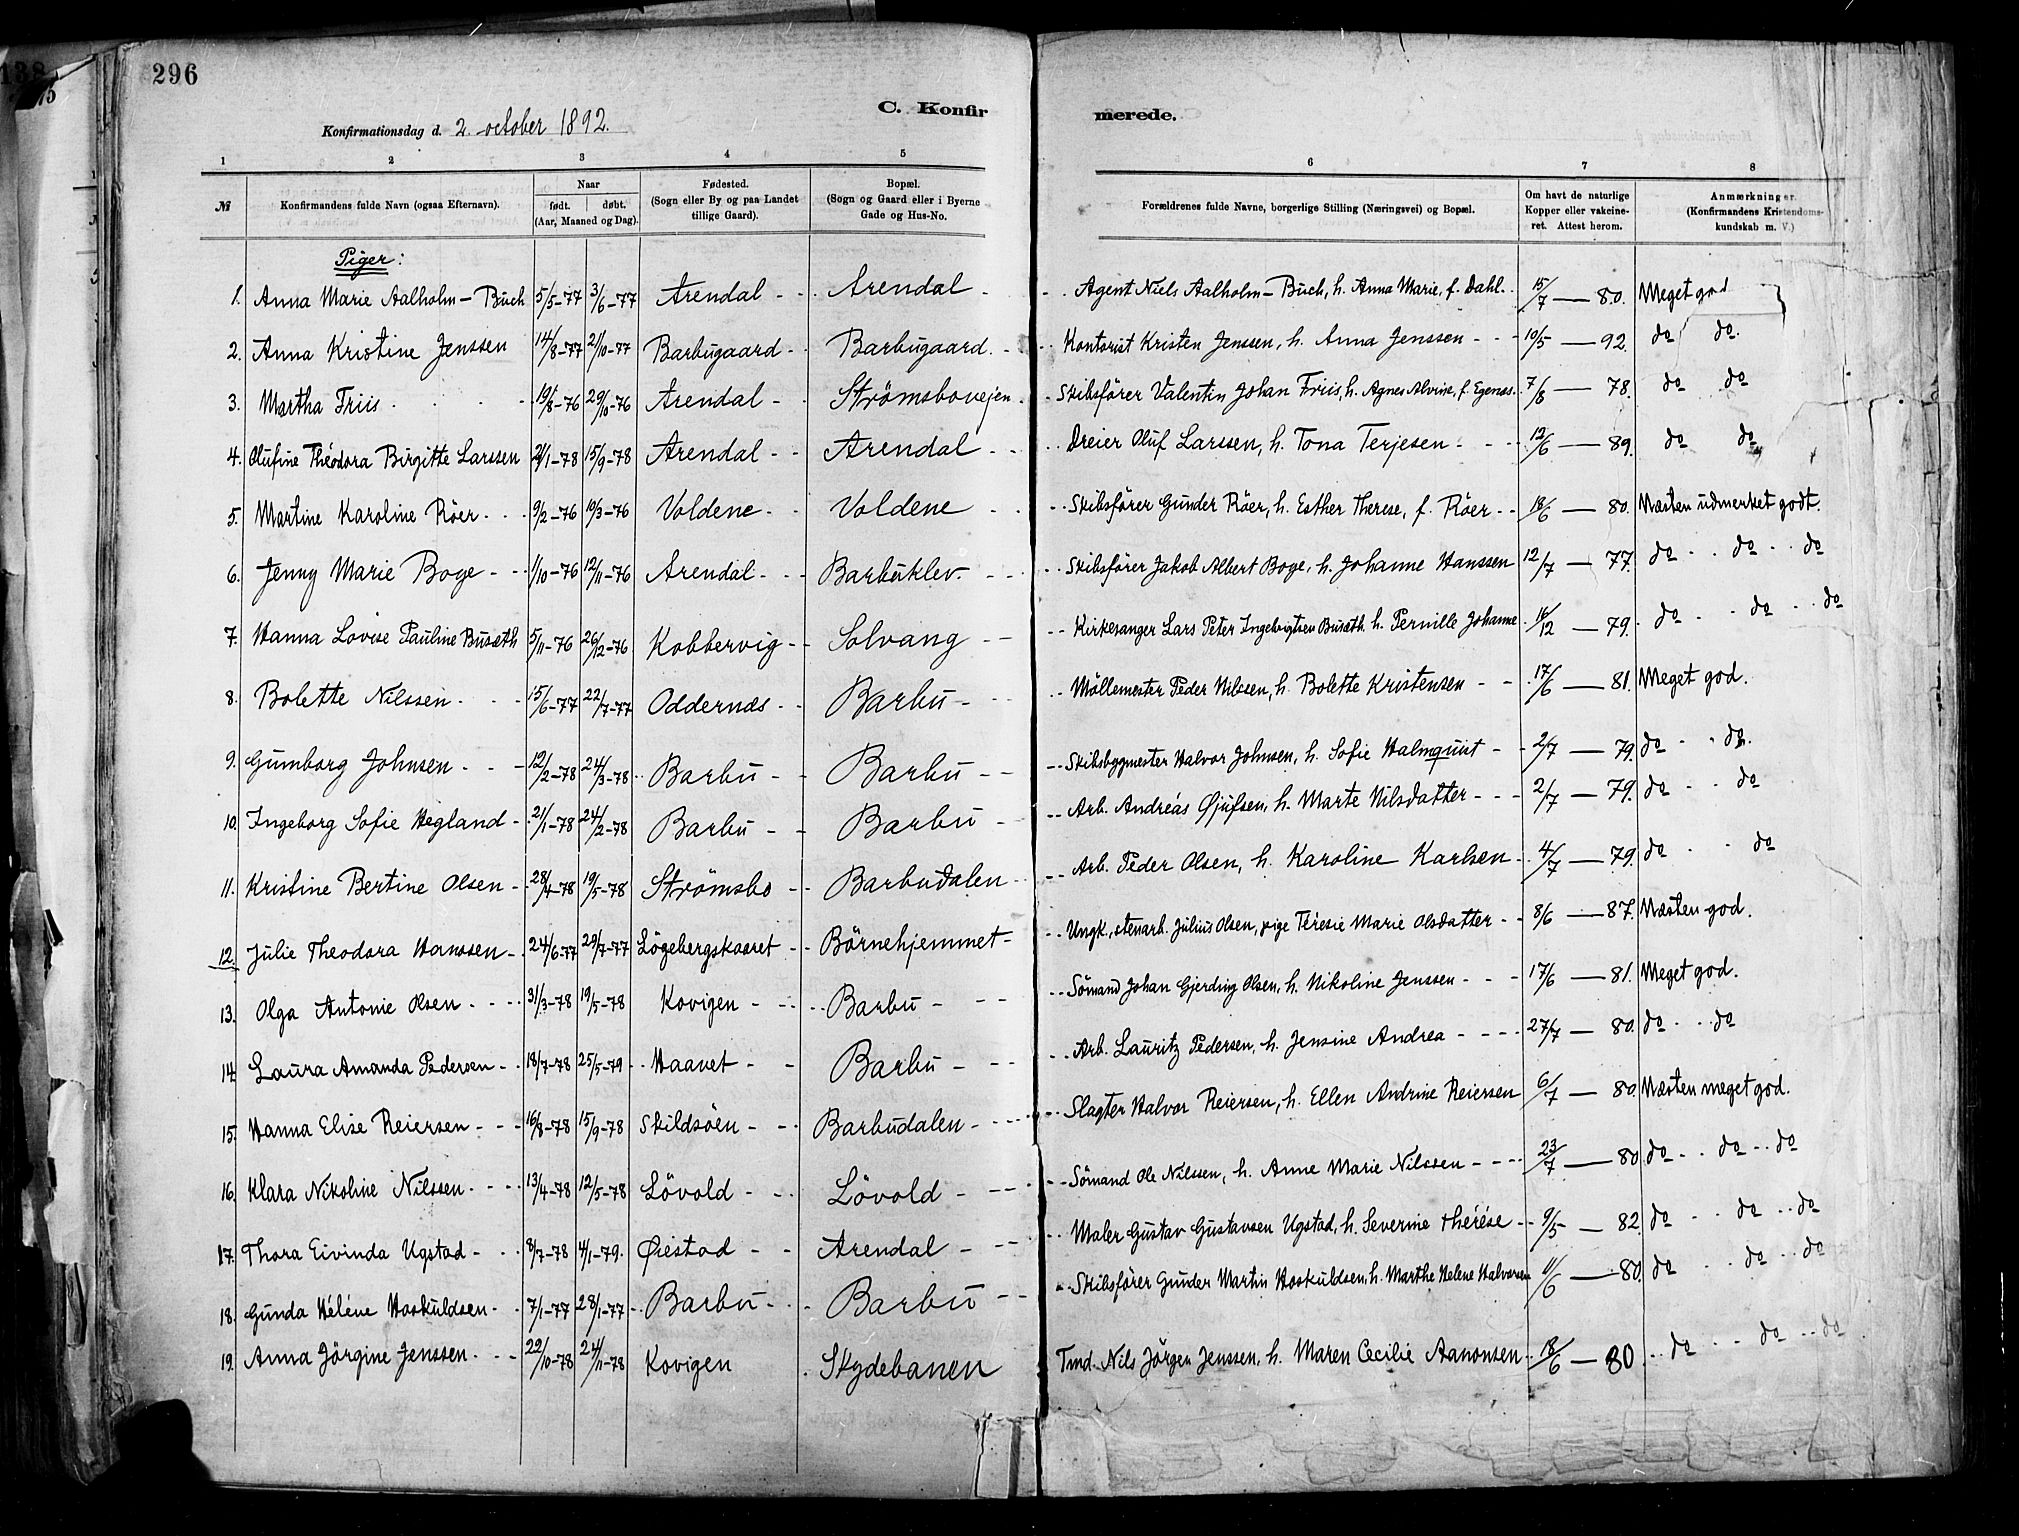 296
C. Konfirmerede.
Konfirmationsdag d. 2. october 1892.
1 2 3 4 5 6 7 8
№ Konfirmandens fulde Navn (ogsaa Efternavn). Naar født. døbt. (Aar, Maaned og Dag). Fødested. (Sogn eller By og paa Landet tillige Gaard). Bopæl. (Sogn og Gaard eller i Byerne Gade og Hus-No. Forældrenes fulde Navne, borgerlige Stilling (Næringsvei) og Bopæl. Om havt de naturlige Kopper eller vakcineret. Attest herom. Anmærkninger. (Konfirmandens Kristendomskundskab m. V.)
Piger:
1. Anna Marie Aalholm - Buch 5/5-77 3/6-77 Arendal Arendal Agent Niels Aalholm - Buch, h. Anna Marie, f. Dahl. 15/7 - 80. Meget god
2. Anna Kristine Jenssen 14/8-77 21/10-77 Barbugaard Barbugaard. Kontorist Kristen Jenssen, h. Anna Jenssen 10/5 - 92. do do.
3. Martha Friis 19/8-76 29/10-76 Arendal Strømsbovejen Skibsfører Valentin Johan Friis, h. Agnes Alvine, f. Egenæs. 7/8 - 78. do do
4. Olufine Théodora Birgitte Larssen 21/1-78 15/9-78 Arendal Arendal Dreier Oluf Larssen, h. Tona Terjesen 12/6 - 89. do do
5. Martine Karoline Röer 9/2-76 19/3-76 Voldene Voldene Skibsfører Gunder Röer, h. Esther Therese, f. Röer 18/6 - 80. Næsten udmerket godt.
6. Jenny Marie Boge 1/10-76 12/11-76 Arendal Barbuklev. Skibsfører Jakob Albert Boge, h. Johanne Hanssen 12/7 - 77. do do do
7. Hanna Lovise Pauline Busæth 5/11-76 26/12-76 Kobbervig Solvang Kirkesanger Lars Peter Ingebrigtsen Busæth. h. Pernille Johanne 16/12 - 79. do do do
8. Bolette Nilssen 15/6-77 22/7-77 Oddernæs Barbu Möllemester Peder Nilssen, h. Bolette Kristensen 17/6 - 81. Meget god.
9. Gumborg Johnsen 12/2-78 24/3-78 Barbu Barbu Skibsbygmester Halvor Johnsen, h. Sofie Halmquist 2/7 - 79. do do.
10. Ingeborg Sofie Hegland 21/1-78 24/2-78 Barbu Barbu Arb. Andreas Øjufsen, h. Marte Nilsdatter 2/7 - 79. do do
11. Kristine Bertine Olsen 28/4-78 19/5-78 Strømsbo Barbudalen Arb. Peder Olsen, h. Karoline Karlsen 4/7 - 79. do do
12. Julie Theodora Hanssen 24/6-77 29/7-77 Lögebergskaaret Börnehjemmet Ungk., stenarb. Julius Olsen, pige Térésie Marie Olsdatter 8/6 - 87. Næsten god.
13. Olga Antonie Olsen 31/3-78 19/5-78 Kovigen Barbu Sömand Johan Gjerding Olsen, h. Nikoline Jenssen 17/6 - 81. Meget god.
14. Laura Amanda Pedersen 18/7-78 25/5-79 Haavet Barbu Arb. Lauritz Pedersen, h. Jensine Andrea 27/7 - 80. do do
15. Hanna Elise Reiersen 16/8-78 15/9-78 Skildsöen Barbudalen Slagter Halvor Reiersen, h. Ellen Andrine Reiersen 6/7 - 80. Næsten meget god.
16. Klara Nikoline Nilssen 13/4-78 12/5-78 Lövold Lövold Sömand Ole Nilssen, h. Anne Marie Nilssen 23/7 - 80 do do do
17. Thora Eivinda Ugstad 8/7-78 4/1-79. Øiestad Arendal Maler Gustav Gustavsen Ugstad, h. Severine Thérése 9/5 - 82. do do do
18. Gunda Héléne Hoskuldsen 7/1-77 28/1-77 Barbu Barbu Skibsfører Gunder Martin Hoskuldsen, h. Marthe Helene Halvorsen 11/6 - 80. do do do
19. Anna Jörgine Jenssen 22/10-78 24/11-78 Kovigen Skydebanen Tmd. Nils Jörgen Jenssen, h. Maren Cecilie Aanonsen 18/6 - 80. do do do